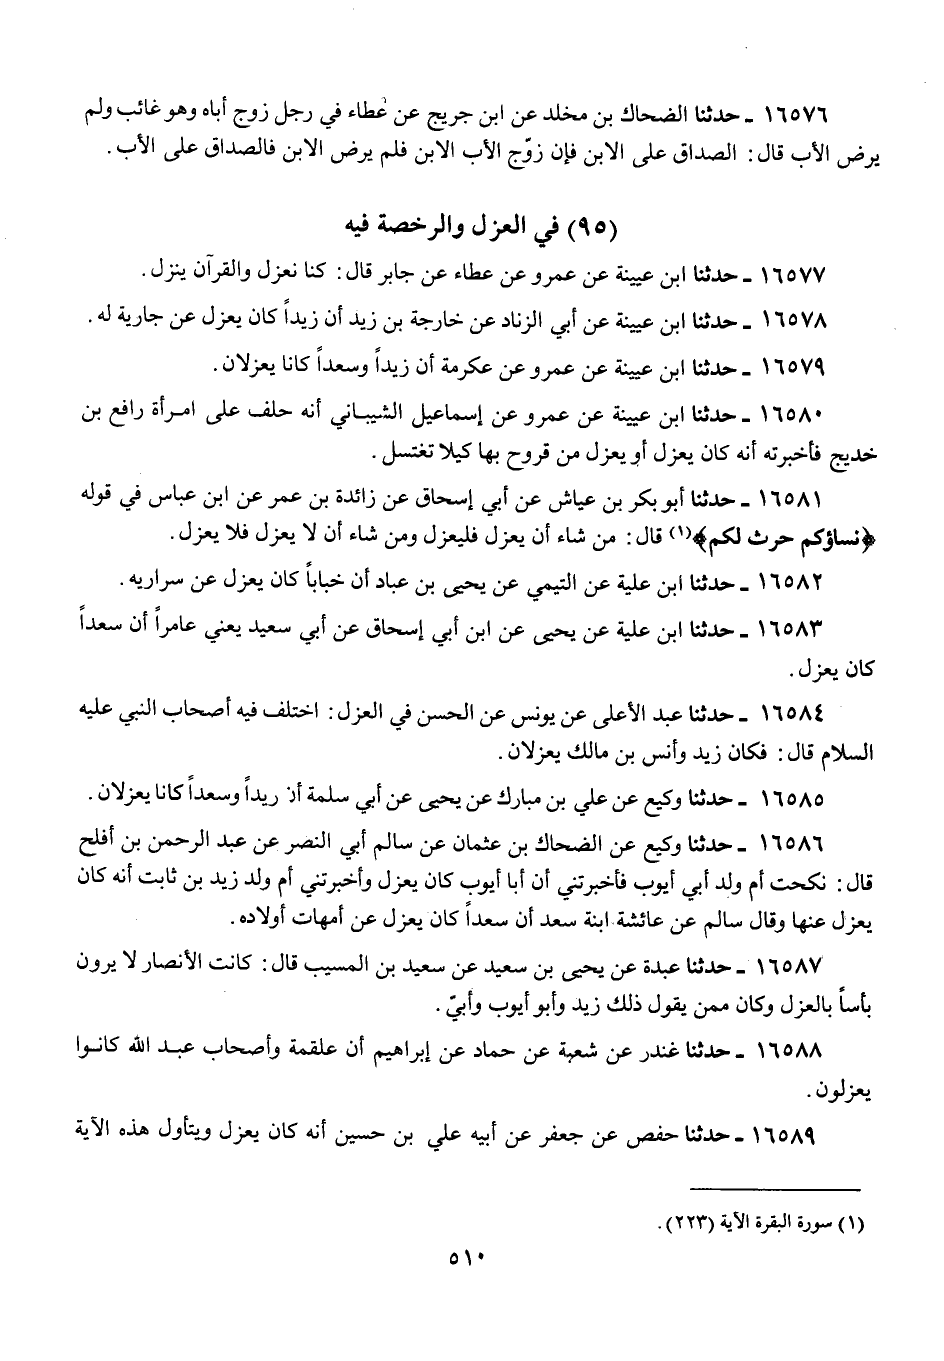 ١٦٥٧٦ ـ حدثنا الضحاك بن مخلد عن ابن جريج عن عطاء في رجل زوج أباه وهو غائب ولم
يرض الأب قال : الصداق على الابن فإن زوّج الأب الابن فلم يرض الابن فالصداق على الأب .
(٩٥) في العزل والرخصة فيه
١٦٥٧٧ ـ حدثنا ابن عيينة عن عمرو عن عطاء عن جابر قال : كنا نعزل والقرآن ينزل .
١٦٥٧٨ ـ حدثنا ابن عيينة عن أبي الزناد عن خارجة بن زيد أن زيداً كان يعزل عن جارية له .
١٦٥٧٩ ـ حدثنا ابن عيينة عن عمرو عن عكرمة أن زيداً وسعداً كانا يعزلان .
١٦٥٨٠ ـ حدثنا ابن عيينة عن عمرو عن إسماعيل الشيباني أنه حلف على امرأة رافع بن
خديج فأخبرته أنه كان يعزل أو يعزل من قروح بها كيلا تغتسل .
١٦٥٨١ ـ حدثنا أبو بكر بن عياش عن أبي إسحاق عن زائدة بن عمر عن ابن عباس في قوله
﴿نساؤكم حرث لكم﴾(١) قال : من شاء أن يعزل فليعزل ومن شاء أن لا يعزل فلا يعزل .
١٦٥٨٢ ـ حدثنا ابن علية عن التيمي عن يحيى بن عباد أن خباباً كان يعزل عن سراريه .
١٦٥٨٣ ـ حدثنا ابن علية عن يحيى عن ابن أبي إسحاق عن أبي سعيد يعني عامراً أن سعداً
كان يعزل .
١٦٥٨٤ ـ حدثنا عبد الأعلى عن يونس عن الحسن في العزل : اختلف فيه أصحاب النبي عليه
السلام قال : فكان زيد وأنس بن مالك يعزلان .
١٦٥٨٥ ـ حدثنا وكيع عن علي بن مبارك عن يحيى عن أبي سلمة أن زيداً وسعداً كانا يعزلان .
١٦٥٨٦ ـ حدثنا وكيع عن الضحاك بن عثمان عن سالم أبي النصر عن عبد الرحمن بن أفلح
قال : نكحت أم ولد أبي أيوب فأخبرتني أن أبا أيوب كان يعزل وأخبرتني أم ولد زيد بن ثابت أنه كان
يعزل عنها وقال سالم عن عائشة ابنة سعد أن سعداً كان يعزل عن أمهات أولاده .
١٦٥٨٧ ـ حدثنا عبدة عن يحيى بن سعيد عن سعيد بن المسيب قال : كانت الأنصار لا يرون
بأساً بالعزل وكان ممن يقول ذلك زيد وأبو أيوب وأبيّ .
١٦٥٨٨ ـ حدثنا غندر عن شعبة عن حماد عن إبراهيم أن علقمة وأصحاب عبد الله كانوا
يعزلون .
١٦٥٨٩ ـ حدثنا حفص عن جعفر عن أبيه علي بن حسين أنه كان يعزل ويتأول هذه الآية
(١) سورة البقرة الآية (٢٢٣) .
٥١٠